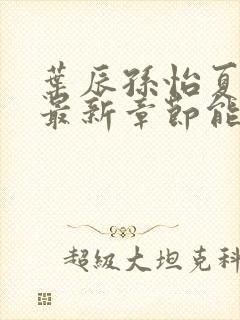 葉辰孫怡夏
最新章節能
超級大坦克科